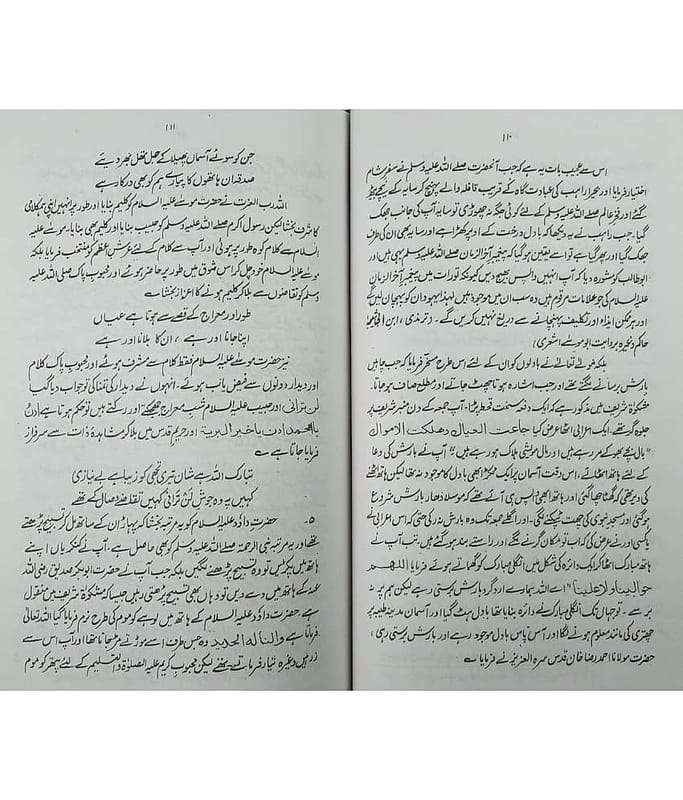 ۱۱۰
اس سے عجیب بات یہ ہے کہ جب آنحضرت صلے اللہ علیہ وسلم نے سفر شام
اختیار فرمایا اور بحیرا راہب کی عبادت گاہ کے قریب قافلہ والے پہنچ کر سایہ کے نیچے بیٹھ
گئے اور فخر عالم صلے اللہ علیہ وسلم کے لئے کوئی جگہ نہ چھوڑی تو سایہ آپ کی جانب جھک
گیا۔ جب راہب نے یہ دیکھا کہ بادل درخت کے اوپر کھڑا ہے اور سایہ بھی ان کی طرف
جھک گیا اور پھر گیا ہے تو اسے یقین ہو گیا کہ پیغمبر آخر الزمان صلے اللہ علیہ وسلم یہی ہیں اور
ابو طالب کو مشورہ دیا کہ آپ انہیں واپس بھیج دیں کیونکہ تورات میں پیغمبر آخر الزمان
علیہ السلام کی جو علامات مرقوم ہیں وہ سب ان میں موجود ہیں لہذا یہود ان کو پہچان لیں گے
اور ہر ممکن ایذاء اور تکلیف پہنچانے سے دریغ نہیں کریں گے۔ (ترمذی، ابن
حاکم وغیرہ بروایت ابو موسےٰ اشعری)
بلکہ خدائے تعالےٰ نے بادلوں کو ان کے لئے اس طرح مسخر فرمایا کہ جب چاہیں
بارش برسانے لگتے تھے اور جب اشارہ ہوتا چھٹ جاتے اور مطلع صاف ہو جاتا۔
مشکوٰۃ شریف میں مذکور ہے کہ ایک دفعہ سخت قحط پڑا۔ آپ جمعہ کے دن منبر شریف پر
جلوہ گر تھے۔ ایک اعرابی اٹھا عرض کیا جاعت العیال وھلکت الاموال
بال بچے بھوکے مر رہے ہیں اور مال مویشی ہلاک ہو رہے ہیں" آپ نے بارش کی دعا
کے لئے ہاتھ اٹھائے، اس وقت آسمان پر ایک ٹکڑا بھی بادل کا موجود نہ تھا لیکن ہاتھ اٹھنے
کی دیر تھی کہ گھٹا چھا گئی اور ہاتھ ابھی واپس ہی آئے تھے کہ موسلا دھار بارش شروع
ہو گئی اور مسجد نبوی کی چھت ٹپکنے لگی۔ اور اگلے جمعہ تک وہ بارش بند نہ رکی حتی کہ اس اعرابی نے
یا کسی اور نے عرض کی کہ اب تو مکان گرنے لگے اور راستے بند ہو گئے ہیں، تب آپ نے
ہاتھ مبارک اٹھا کر ایک دائرہ کی شکل میں انگلی مبارک کو گھماتے ہوئے فرمایا اللھم
حوالینا ولا علینا "اے اللہ ہمارے ارد گرد بارش برستی رہے لیکن ہم پر نہ
برسے۔ تو جہاں تک انگلی مبارک نے دائرہ بنایا تھا بادل ہٹ گیا اور آسمان مدینہ طیبہ پر
چھتری کی مانند معلوم ہونے لگا اور آس پاس بادل موجود رہے اور بارش برستی رہی،
حضرت مولانا احمد رضا خان قدس سرہ العزیز نے فرمایا ہے
۱۱۱
جن کو سوئے آسماں پھیلا کے جل تھل بھر دیئے
صدقہ ان ہاتھوں کا پیارے ہم کو بھی درکار ہے
اللہ رب العزت نے حضرت موسےٰ علیہ السلام کو کلیم بنایا اور طور پر انہیں اپنی ہمکلامی
کا شرف بخشا لیکن رسول اکرم صلے اللہ علیہ وسلم کو حبیب بنایا اور کلیم بھی بنایا۔ موسےٰ علیہ
السلام سے کلام کوہ طور پر ہوئی اور آپ سے کلام کے لئے عرش اعظم کو منتخب فرمایا بلکہ
موسےٰ علیہ السلام خود چل کر اس شوق میں طور پر حاضر ہوئے اور محبوب پاک صلی اللہ علیہ
وسلم کو تقاضوں سے بلا کر کلیم ہونے کا اعزاز بخشا ہے
طور اور معراج کے قصے سے ہوتا ہے عیاں
اپنا جانا اور ہے، ان کا بلانا اور ہے
نیز حضرت موسےٰ علیہ السلام فقط کلام سے مشرف ہوئے اور محبوب پاک کلام
اور دیدار دونوں سے فیض یاب ہوئے، انہوں نے دیدار کی تمنا کی تو جواب دیا گیا
لن ترانی اور حبیب علیہ السلام شب معراج جھجکتے اور رکتے ہیں تو حکم ہوتا ہے ادن
یا محمد ادن یا خیر البریۃ اور حریم قدس میں بلا کر مشاہدہ ذات سے سرفراز
فرمایا جاتا ہے
تبارک اللہ ہے شان تیری تجھی کو زیبا ہے بے نیازی
کہیں یہ وہ جوش لن ترانی کہیں تقاضے وصال کے تھے
۵۔ حضرت داؤد علیہ السلام کو یہ مرتبہ بخشا کہ پہاڑ ان کے ساتھ مل کر تسبیح پڑھتے
تھے اور یہ مرتبہ نبی الرحمۃ صلے اللہ علیہ وسلم کو بھی حاصل ہے۔ آپ نے کنکریاں اپنے
ہاتھ میں پکڑیں تو وہ تسبیح پڑھنے لگیں بلکہ جب آپ نے حضرت ابوبکر صدیق رضی اللہ
عنہ کے ہاتھ میں دے دیں تو وہاں بھی تسبیح پڑھتی رہیں جیسے کہ مشکوٰۃ شریف میں منقول
ہے، حضرت داؤد علیہ السلام کے ہاتھ میں لوہے کو موم کی طرح نرم فرمایا گیا اللہ تعالٰی
فرماتا ہے والنا لہ الحدید وہ جس طرف اسے موڑتے مڑ جاتا تھا اور آپ اس سے
زرہیں وغیرہ تیار فرماتے تھے لیکن محبوب کریم علیہ الصلوٰۃ والتسلیم کے لئے پتھر کو موم